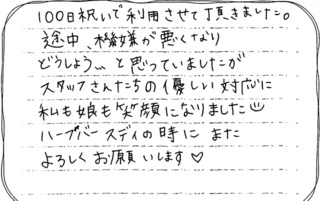 100日祝いで利用させて頂きました。
途中、機嫌が悪くなり
どうしよう、、と思っていましたが
スタッフさんたちの優しい対応に
私も娘も笑顔になりました
ハーフバースディの時に また
よろしくお願いします♡